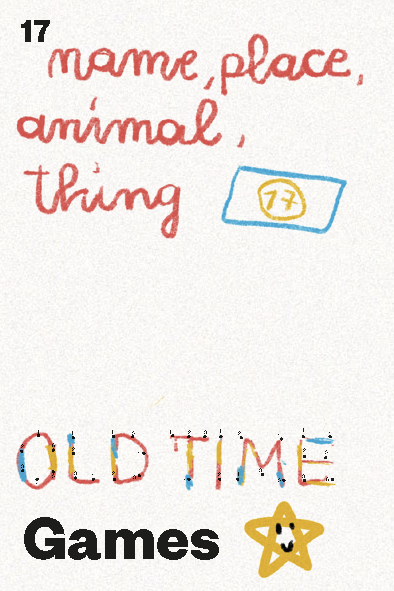 17
name, place,
animal,
thing
17
OLD TIME
Games